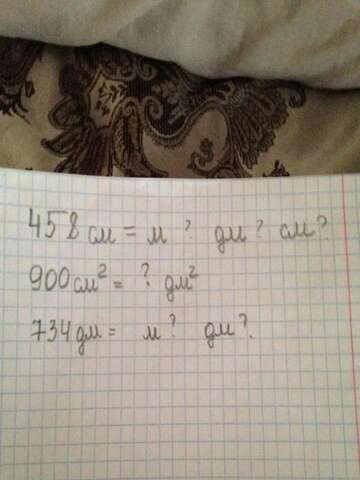 458 см = м ? дм ? см ?
900 см² = ? дм²
734 дм = м ? дм ?.